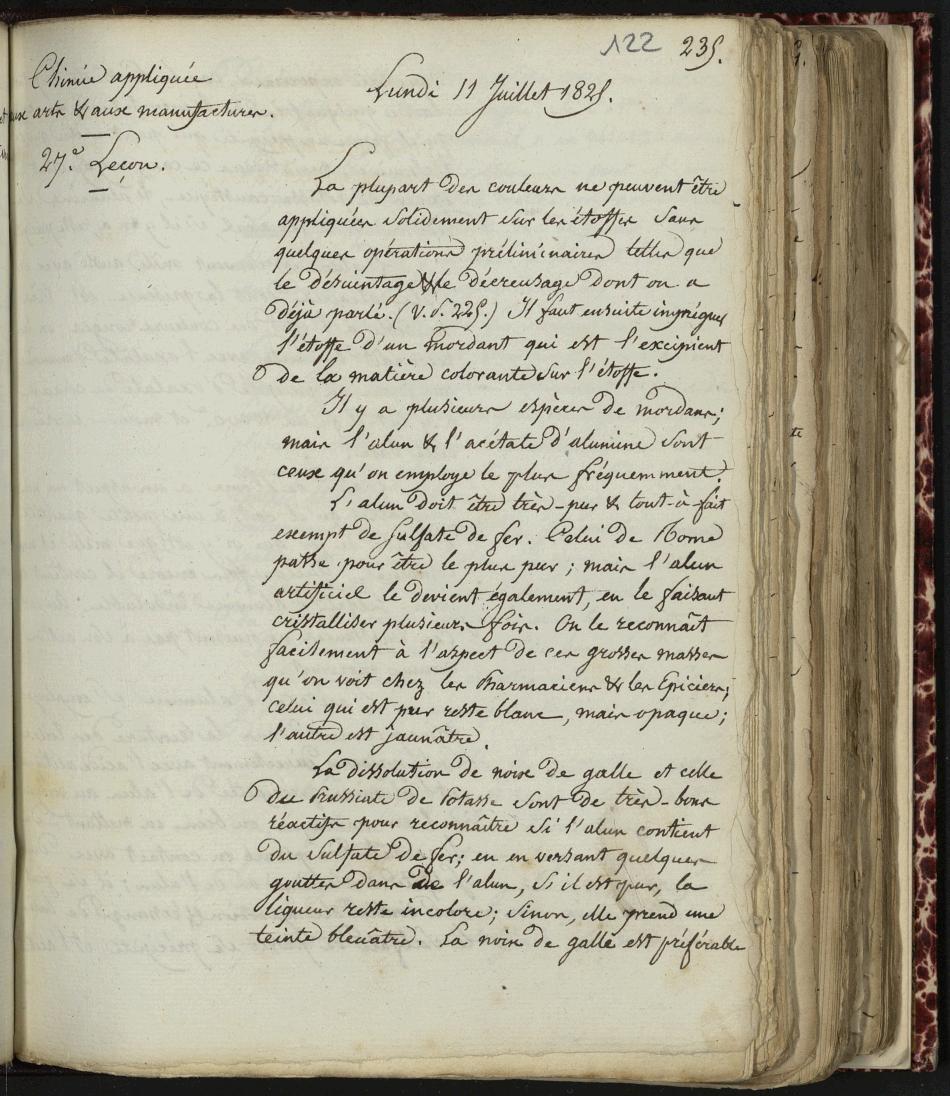 122 235.
Chimie appliquée
aux arts & aux manufactures.
27.e Leçon.
Lundi 11 Juillet 1825.
La plupart des couleurs ne peuvent être
appliquées solidement sur les étoffes sans
quelques opérations préliminaires telles que
le désuintage & le décreusage dont on a
déjà parlé. (V. p. 225.) Il faut ensuite imprégner
l'étoffe d'un mordant qui est l'excipient
de la matière colorante sur l'étoffe.
Il y a plusieurs espèces de mordans;
mais l'alun & l'acétate d'alumine sont
ceux qu'on employe le plus fréquemment.
L'alun doit être très-pur & tout-à-fait
exempt de sulfate de fer. Celui de Rome
passe pour être le plus pur; mais l'alun
artificiel le devient également, en le faisant
cristalliser plusieurs fois. On le reconnaît
facilement à l'aspect de ces grosses masses
qu'on voit chez les Pharmaciens & les Epiciers;
celui qui est pur reste blanc, mais opaque;
l'autre est jaunâtre.
La dissolution de noix de galle et celle
du Prussiate de Potasse sont de très-bons
réactifs pour reconnaître si l'alun contient
du sulfate de fer; en en versant quelques
gouttes dans de l'alun, si il est pur, la
liqueur reste incolore; sinon, elle prend une
teinte bleuâtre. La noix de galle est préférable